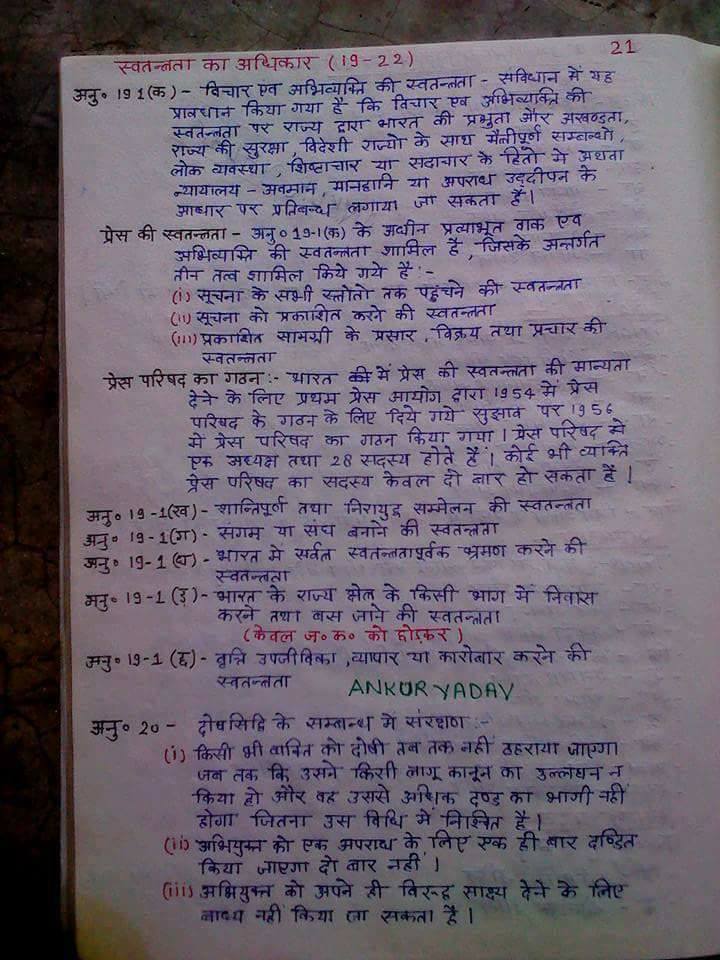 21
स्वतन्त्रता का अधिकार (19-22)
अनु० 19 1(क) - विचार एवं अभिव्यक्ति की स्वतन्त्रता - संविधान में यह
प्रावधान किया गया है कि विचार एवं अभिव्यक्ति की
स्वतन्त्रता पर राज्य द्वारा भारत की प्रभुता और अखण्डता,
राज्य की सुरक्षा, विदेशी राज्यो के साथ मैत्रीपूर्ण सम्बन्धो,
लोक व्यवस्था, शिष्टाचार या सदाचार के हितो मे अथवा
न्यायालय - अवमान, मानहानि या अपराध उद्दीपन के
आधार पर प्रतिबन्ध लगाया जा सकता है।
प्रेस की स्वतन्त्रता - अनु० 19-1(क) के अधीन प्रत्याभूत वाक एवं
अभिव्यक्ति की स्वतन्त्रता शामिल है, जिसके अन्तर्गत
तीन तत्व शामिल किये गये है :-
(i) सूचना के सभी स्त्रोतो तक पहुंचने की स्वतन्त्रता
(ii) सूचना को प्रकाशित करने की स्वतन्त्रता
(iii) प्रकाशित सामग्री के प्रसार, विक्रय तथा प्रचार की
स्वतन्त्रता
प्रेस परिषद का गठन :- भारत में प्रेस की स्वतन्त्रता की मान्यता
देने के लिए प्रथम प्रेस आयोग द्वारा 1954 में प्रेस
परिषद के गठन के लिए दिये गये सुझाव पर 1956
मे प्रेस परिषद का गठन किया गया। प्रेस परिषद मे
एक अध्यक्ष तथा 28 सदस्य होते है। कोई भी व्यक्ति
प्रेस परिषद का सदस्य केवल दो बार हो सकता है।
अनु० 19-1(ख) - शान्तिपूर्ण तथा निरायुद्ध सम्मेलन की स्वतन्त्रता
अनु० 19-1(ग) - संगम या संघ बनाने की स्वतन्त्रता
अनु० 19-1(घ) - भारत मे सर्वत्र स्वतन्त्रतापूर्वक भ्रमण करने की
स्वतन्त्रता
अनु० 19-1(ड़) - भारत के राज्य क्षेत्र के किसी भाग में निवास
करने तथा बस जाने की स्वतन्त्रता
(केवल ज० क० को छोडकर)
अनु० 19-1 (छ) - वृत्ति उपजीविका, व्यापार या कारोबार करने की
स्वतन्त्रता
ANKUR YADAV
अनु० 20 - दोषसिद्वि के सम्बन्ध में संरक्षण :-
(i) किसी भी वाक्ति को दोषी तब तक नही ठहराया जाएगा
जब तक कि उसने किसी लागू कानून का उल्लघन न
किया हो और वह उससे अधिक दण्ड का भागी नही
होगा जितना उस विधि में निश्चित है।
(ii) अभियुक्त को एक अपराध के लिए एक ही बार दण्डित
किया जाएगा दो बार नहीं।
(iii) अभियुक्त को अपने ही विरुद्ध साक्ष्य देने के लिए
बाध्य नही किया जा सकता है।